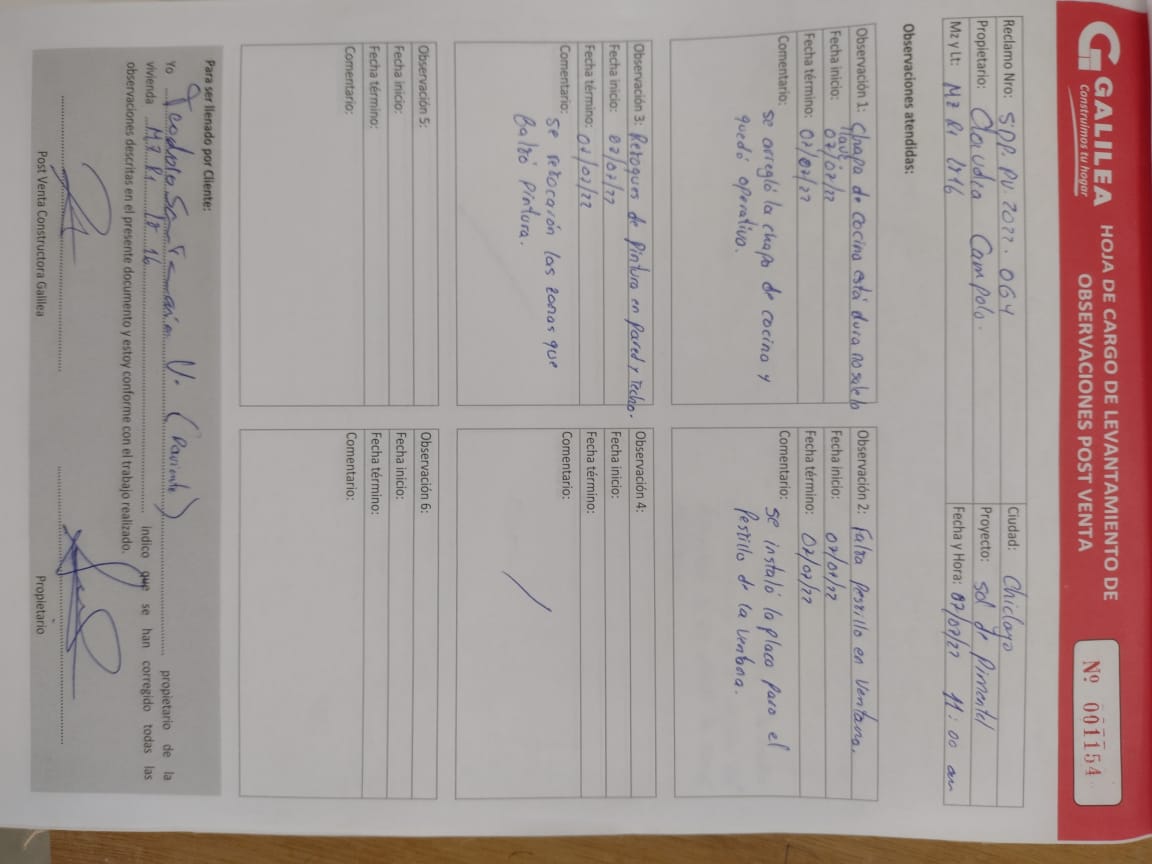 GALILEA
Construimos tu hogar
HOJA DE CARGO DE LEVANTAMIENTO DE
OBSERVACIONES POST VENTA
Nº 001154
Reclamo Nro: SPP. PV. 2022. 064
Ciudad: Chiclayo
Propietario: Claudia Campolo.
Proyecto: Sol de Pimentel
Mz y Lt: Mz R1 Lt 16
Fecha y Hora: 07/07/22 11:00 am
Observaciones atendidas:
Observación 1: Chapa de cocina está dura no sale la
llave
Fecha inicio: 07/07/22
Fecha término: 07/07/22
Comentario: Se arregló la chapa de cocina y
quedó operativa.
Observación 2: Falta pestillo en ventana.
Fecha inicio: 07/07/22
Fecha término: 07/07/22
Comentario: Se instaló la placa para el
Pestillo de la ventana.
Observación 3: Retoques de Pintura en pared y techo.
Fecha inicio: 07/07/22
Fecha término: 07/07/22
Comentario:
Se retocarón las zonas que
Faltó Pintura.
Observación 4:
Fecha inicio:
Fecha término:
Comentario:
Observación 5:
Fecha inicio:
Fecha término:
Comentario:
Observación 6:
Fecha inicio:
Fecha término:
Comentario:
Para ser llenado por Cliente:
Yo V. (Pariente) propietario de la
vivienda Mz R1 Lt 16 indico que se han corregido todas las
observaciones descritas en el presente documento y estoy conforme con el trabajo realizado.
Post Venta Constructora Galilea
Propietario